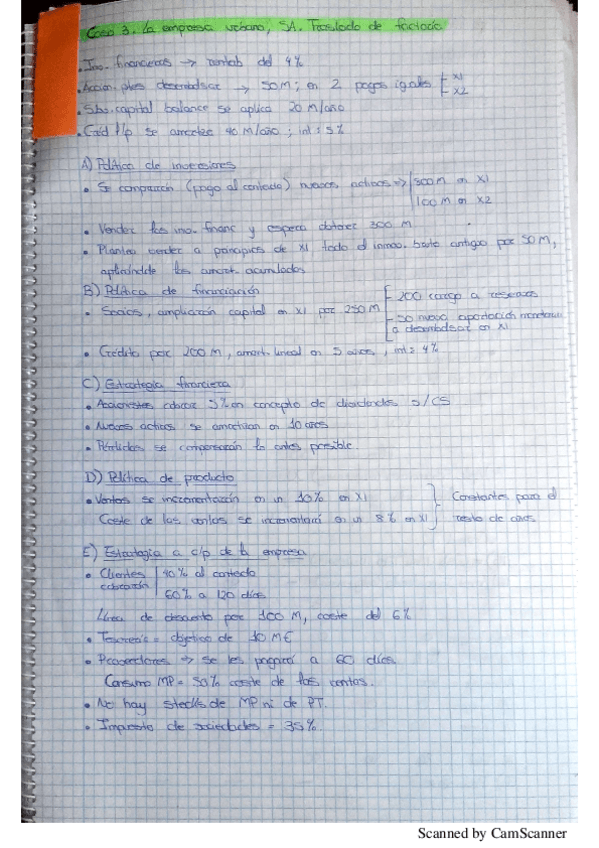 Caso 3. La empresa urbano, SA. Traslado de factoría
• Inv. financieras → rentab del 4%
• Accion. ptes desembolsar → 50M; en 2 pagos iguales X1 X2
• Sbv. capital balance se aplica 20 M/año
• Créd l/p se amortiza 40 M/año; int: 5%
A) Política de inversiones
• Se comprarán (pago al contado) nuevos activos ⇒ 300M en X1
100M en X2
• Vender las inv. financ y espera obtener 300 M
• Plantea vender a principios de X1 todo el inmov. bruto antiguo por 50M,
aplicándole las amort. acumuladas
B) Política de financiación
• Socios, ampliación capital en X1 por 250M 200 cargo a reservas
50 nueva aportación monetaria
a desembolsar en X1
• Crédito por 200M, amort. lineal en 5 años, int: 4%
C) Estrategia financiera
• Accionistas cobrar 5% en concepto de dividendos s/CS
• Nuevos activos se amortizan en 10 años
• Pérdidas se compensarán lo antes posible.
D) Política de producto
• Ventas se incrementarán en un 10% en X1
Coste de las ventas se incrementará en un 8% en X1
Constantes para el
resto de años
E) Estrategia a c/p de la empresa
• Clientes 40% al contado
cobrarán 60% a 120 días
Línea de descuento por 100 M, coste del 6%
• Tesorería = objetivo de 10 M€
• Proveedores ⇒ se les pagará a 60 días
Consumo MP = 50% coste de las ventas.
• No hay stocks de MP ni de PT.
• Impuesto de sociedades = 35%.
Scanned by CamScanner